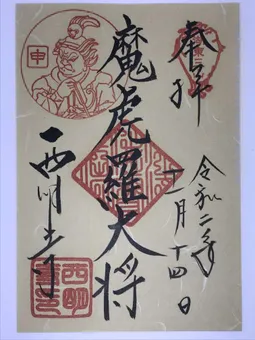 奉拝
令和二年
十一月十四日
魔虎羅大将
申
西明寺
西明寺印